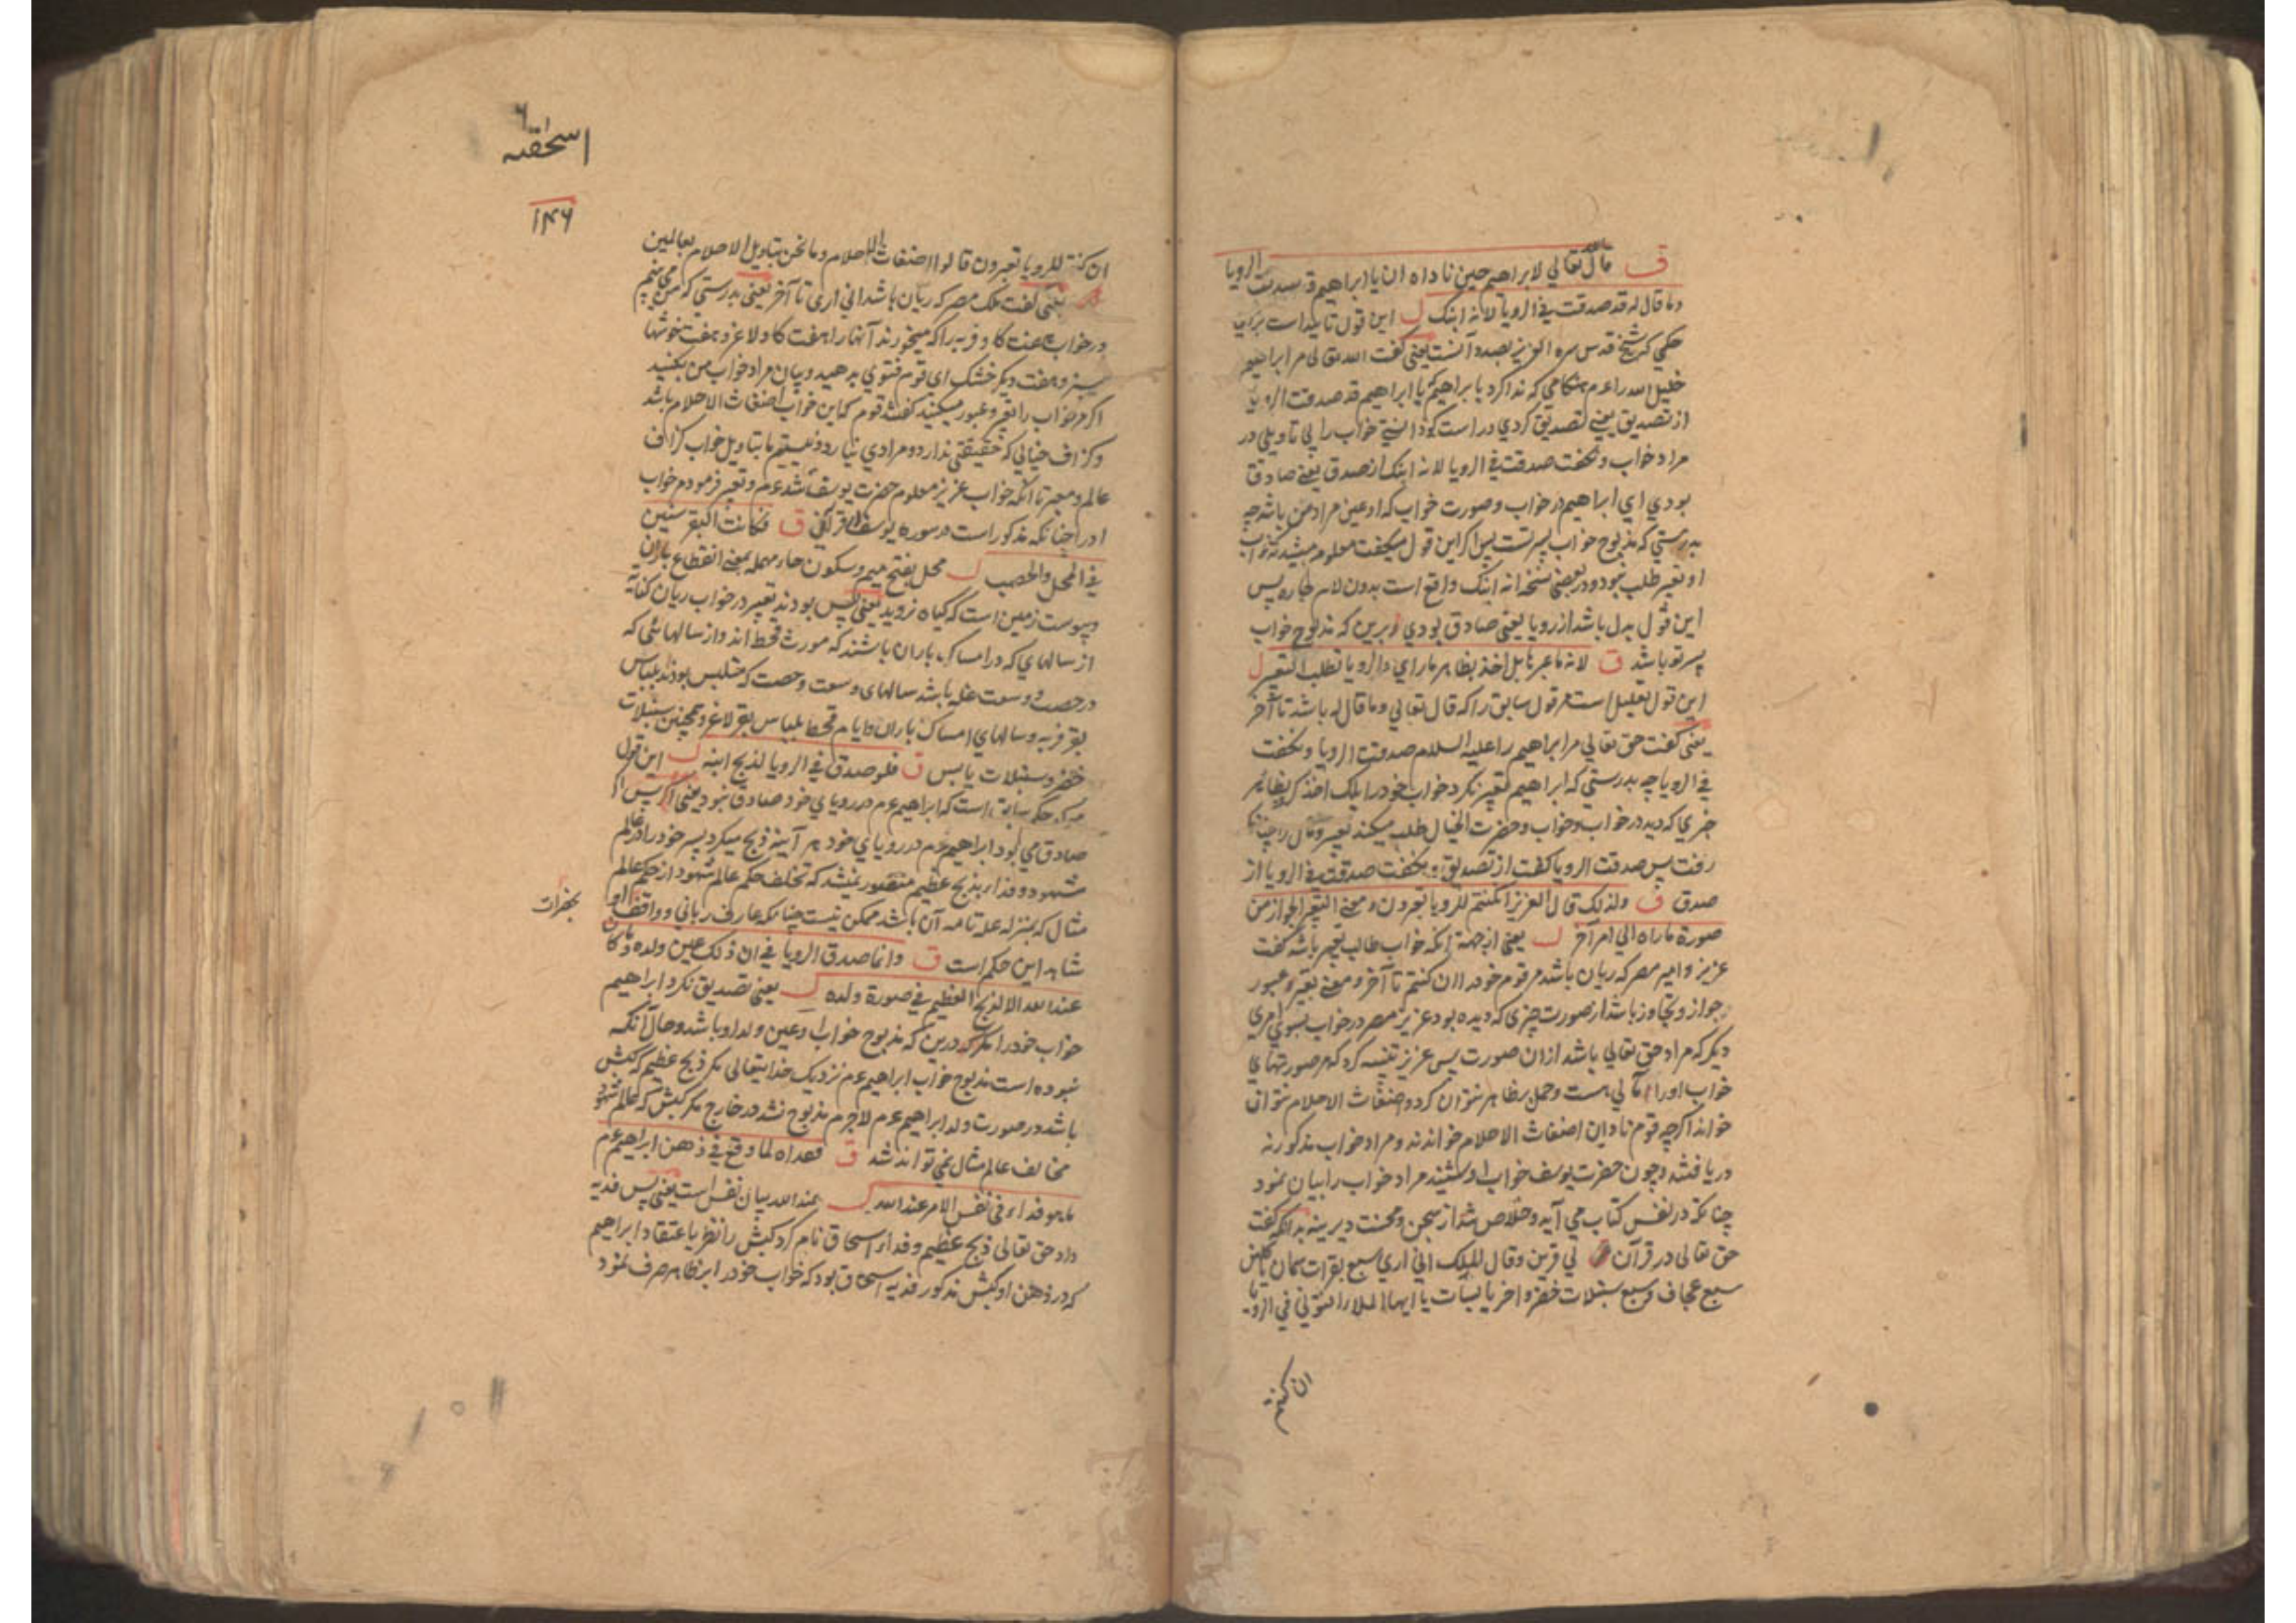 ق قال الله تعالی لابراهیم حین ناداه ان یا ابراهیم قد صدقت الرویا
وما قال له قد صدقت فی الرویا لانه ابنک ل این قول تایید است برای
حکمی که شیخ قدس سره العزیز بصدد آنست یعنی گفت الله تعالی مر ابراهیم
خلیل الله را عم هنگامی که ندا کرد یا ابراهیم یا ابراهیم قد صدقت الرویا
از تصدیق یعنی تصدیق کردی و راست کو دانستی خواب را بی تاویلی در
مراد خواب و نکفت صدقت فی الرویا لانه ابنک از صدق یعنی صادق
بودی ای ابراهیم در خواب و صورت خواب که او عین مراد من باشد چه
بدرستی که مذبوح خواب پسر تست پس اگر این قول میکفت معلوم میشد که خواب
او تعبیر طلب نبود و در بعضی نسخه انه ابنک واقع است بدون لام جاره پس
این قول بدل باشد از رویا یعنی صادق بودی برین که مذبوح خواب
پسر تو باشد ق لانه ما عبرها بل اخذ بظاهر ما رای والرویا تطلب التعبیر ل
این قول تعلیل است مر قول سابق را که قال تعالی وما قال له باشد تا آخر
یعنی گفت حق تعالی مر ابراهیم را علیه السلام صدقت الرویا و نکفت
فی الرویا چه بدرستی که ابراهیم تعبیر نکرد خواب خود را بلک اخذ کرد بظاهر
چیزی که دید در خواب و خواب و حضرت الخیال طلب میکند تعبیر و مآل را چنانکه
رفت پس صدقت الرویا کفت از تصدیق و نکفت صدقت فی الرویا از
صدق ق ولذلک قال العزیز ان کنتم للرویا تعبرون و معنی التعبیر الجواز من
صورة ما راه الی امر آخر ل یعنی از جهة آنکه خواب طالب تعبیر باشد کفت
عزیز و امیر مصر که ریان باشد مر قوم خود را ان کنتم تا آخر و معنی تعبیر و عبور
جواز و تجاوز باشد از صورت چیزی که دیده بود عزیز مصر در خواب بسوی امری
دیکر که مراد حق تعالی باشد ازان صورت پس عزیز تنبیه کرد که مر صورتهای
خواب او را مآلی هست و حمل بر ظاهر نتوان کرد و اضغاث الاحلام نتوان
خواند اکرچه قوم نادان اضغاث الاحلام خواندند و مراد خواب مذکور نه
دریافتند و چون حضرت یوسف خواب او شنیند مراد خواب را بیان نمود
چنانکه در نفس کتاب می آید و خلاص شد از سجن و محنت دیرینه بدانکه کفت
حق تعالی در قرآن وقال الملک انی اری سبع بقرات سمان یاکلهن
سبع عجاف و سبع سنبلات خضر و اخر یابسات یا ایها الملا افتونی فی الرویا
ان کنتم
اسحقیه
۱۴۶
ان کنتم للرویا تعبرون قالوا اضغاث الاحلام وما نحن بتاویل الاحلام بعالمین
یعنی گفت ملک مصر که ریان باشد انی اری تا آخر یعنی بدرستی که من می بینم
در خواب هفت کاو فربه را که میخورند آنها را هفت کاو لاغر و هفت خوشها
سبز و هفت دیکر خشک ای قوم فتوی بدهید و بیان مراد خواب من بکنید
اکر مر خواب را تعبیر و عبور میکنید کفتند قوم که این خواب اضغاث الاحلام باشد
و کزاف خیالی که حقیقتی ندارد و مرادی نیارد و نیستیم ما بتاویل خواب کزاف
عالم و معبر تا آنکه خواب عزیز معلوم حضرت یوسف شد عم و تعبیر فرمود مر خواب
او را چنانکه مذکور است در سوره یوسف قرآنی ق فکانت البقر سنین
فی المحل والخصب ل محل بفتح میم و سکون حاء مهمله بمعنی انقطاع باران
و یبوست زمین است که کیاه نروید یعنی پس بودند تعبیر در خواب ریان کنایه
از سالهای که در امساک باران باشند که مورث قحط اند و از سالهائی که
در خصب و وسعت غله باشد سالهای وسعت و خصب که متلبس بودند بلباس
بقر فربه و سالهای امساک باران و ایام قحط بلباس بقر لاغر و همچنین سنبلات
خضر و سنبلات یابس ق فلو صدق فی الرویا لذبح ابنه ل این قول
حکم سابق است که ابراهیم عم در رویای خود صادق نبود یعنی اکر پس
صادق می بود ابراهیم عم در رویای خود هر آینه ذبح میکرد پسر خود را در عالم
شهود و فداء بذبح عظیم متصور نمیشد که تخلف حکم عالم شهود از حکم عالم
مثال که بمنزله علة تامه آن باشد ممکن نیست چنانکه عارف ربانی و واقف
شاهد این حکم است ق وانما صدق الرویا فی ان ذلک عین ولده وما کان
عند الله الا الذبح العظیم فی صورة ولده ل یعنی تصدیق نکرد ابراهیم
خواب خود را مکر درین که مذبوح خواب او عین ولد او باشد و حال آنکه
نبوده است مذبوح خواب ابراهیم عم نزدیک خدایتعالی مکر ذبح عظیم که کبش
باشد در صورت ولد ابراهیم عم لاجرم مذبوح نشد در خارج مکر کبش که عالم شهود
مخالف عالم مثال نمی تواند شد ق ففداه لما وقع فی ذهن ابراهیم عم
ما هو فداء فی نفس الامر عند الله ل عند الله بیان نفس است یعنی پس فدیه
داد حق تعالی ذبح عظیم و فداء اسحاق نام کرد کبش را نظر باعتقاد ابراهیم
که در ذهن او کبش مذکور فدیه اسحاق بود که خواب خود را بر ظاهر صرف نمود